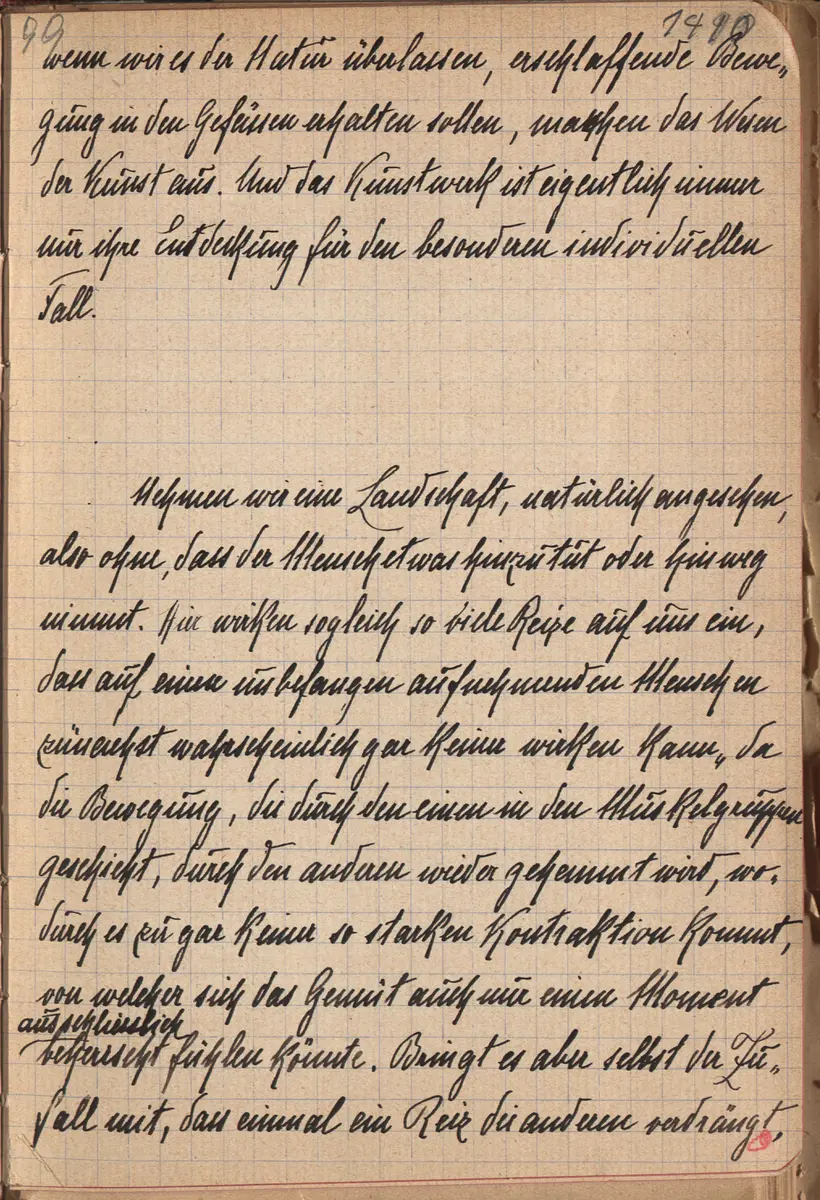 99
wenn wir es der Natur überlassen, erschlaffende Bewe„
gung in den Gefässen erhalten sollen, machen das Wesen
der Kunst aus. Und das Kunstwerk ist eigentlich immer
nur ihre Entdeckung für den besonderen individuellen
Fall.
Nehmen wir eine Landschaft, natürlich angesehen,
also ohne, dass der Mensch etwas hinzutut oder hinweg
nimmt. Hier wirken sogleich so viele Reize auf uns ein,
dass auf einen unbefangen aufnehmenden Menschen
zunaechst wahrscheinlich gar keiner wirken kann„ da
die Bewegung, die durch den einen in den Muskelgruppen
geschieht, durch den anderen wieder gehemmt wird, wo-
durch es zu gar keiner so starken Kontraktion kommt,
von welcher sich das Gemüt auch nur einen Moment
ausschliesslich
beherrscht fühlen könnte. Bringt es aber selbst der Zu„
fall mit, dass einmal ein Reiz die anderen verdrängt,